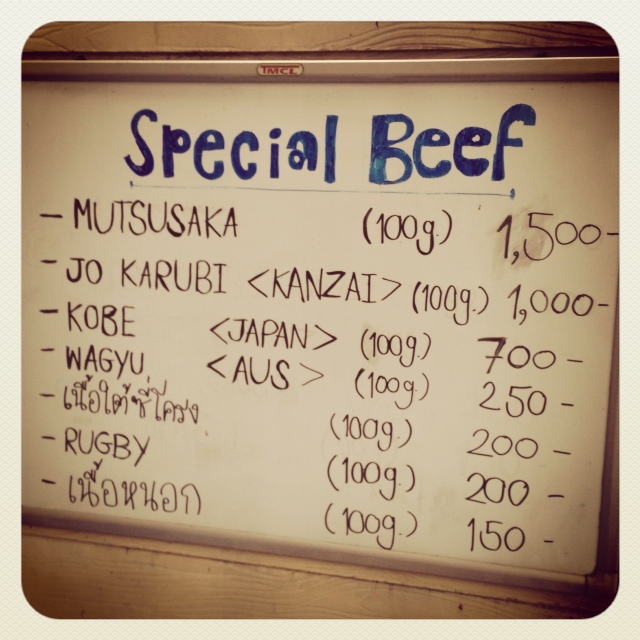 TMCL
Special Beef
- MUTSUSAKA (100g.) 1,500-
- JO KARUBI <KANZAI> (100g.) 1,000-
- KOBE <JAPAN> (100g.) 700-
- WAGYU <AUS> (100g.) 250-
- เนื้อใต้ซี่โครง (100g.) 200-
- RUGBY (100g.) 200-
- เนื้อหนอก (100g.) 150-